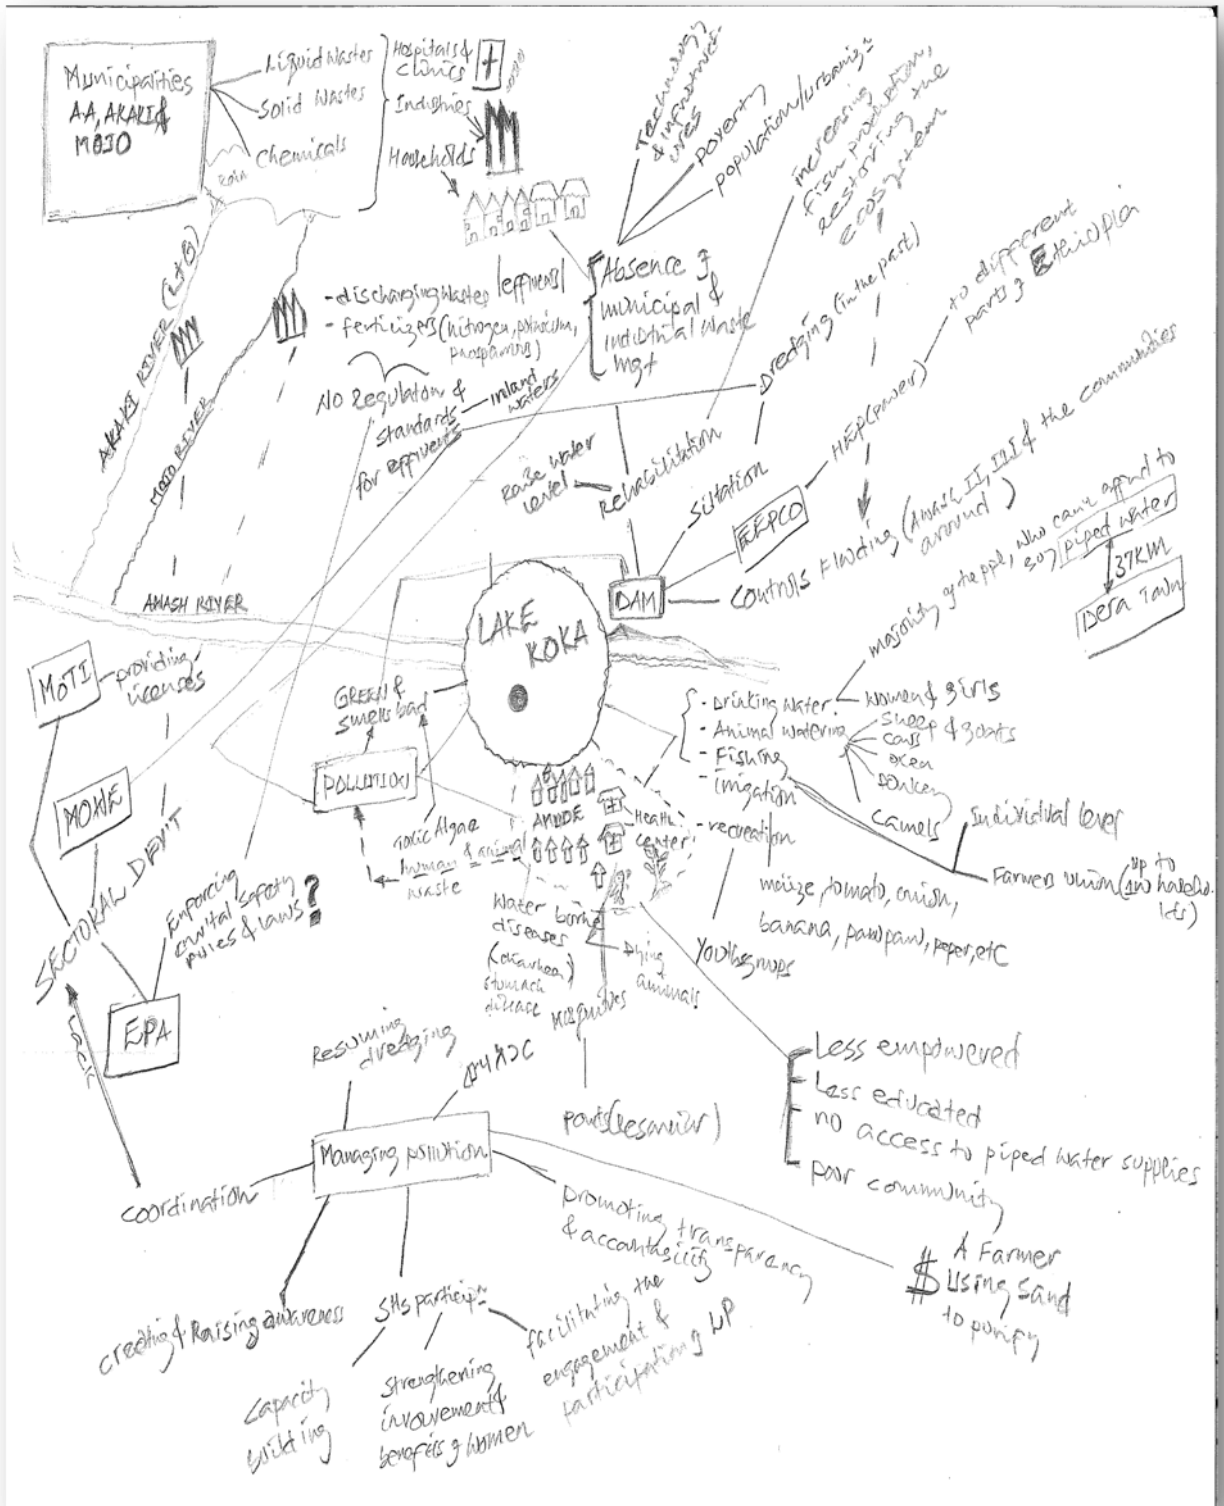 Municipalities
AA, AKAKI &
MOJO
Liquid Wastes
Solid Wastes
Chemicals
Hospitals &
Clinics
Industries
Households
Technology
& infrastruct-
ures
poverty
population/urbaniz-n
increasing
fish production,
restoring the
ecosystem
Absence of
municipal &
industrial waste
mgt
- discharging wastes /effluents/
- fertilizers (nitrogen, potassium,
phosphorous)
NO Regulation &
standards
for effluents
inland
waters
AKAKI RIVER
MOJO RIVER
AWASH RIVER
Raise water
level
Rehabilitation
Siltation
Dredging (in the past)
EEPCO
HEP (power)
to different
parts of Ethiopia
DAM
Controls Flooding (Awash II, III & the communities
around)
LAKE
KOKA
majority of the ppl, who can't afford to
piped water
37KM
Dera Town
MOTI
providing
licenses
MOWE
SECTORAL DEV'T
Enforcing
policies & laws
?
EPA
Lack
GREEN &
smells bad
POLLUTION
Toxic Algae
human & animal
waste
AMUDE
Health
center
- Drinking water
- Animal watering
- Fishing
- irrigation
- recreation
Women & girls
Sheep & goats
cows
oxen
Donkey
Camels
Individual level
Farmers union (up to
maize, tomato, onion,
banana, pawpaw, peper, etc
Youthgroups
Water borne
diseases
(diarrhea)
stomach
disease
Dying
animals
Mosquitoes
Less empowered
Less educated
no access to piped water supplies
poor community
Resuming
dredging
Managing pollution
coordination
creating & Raising awareness
SHs particip-n
Capacity
building
Strengthening
involvement &
benefits of women
facilitating the
engagement &
participation of
promoting transparency
& accountability
$ A Farmer
Using Sand
to purify